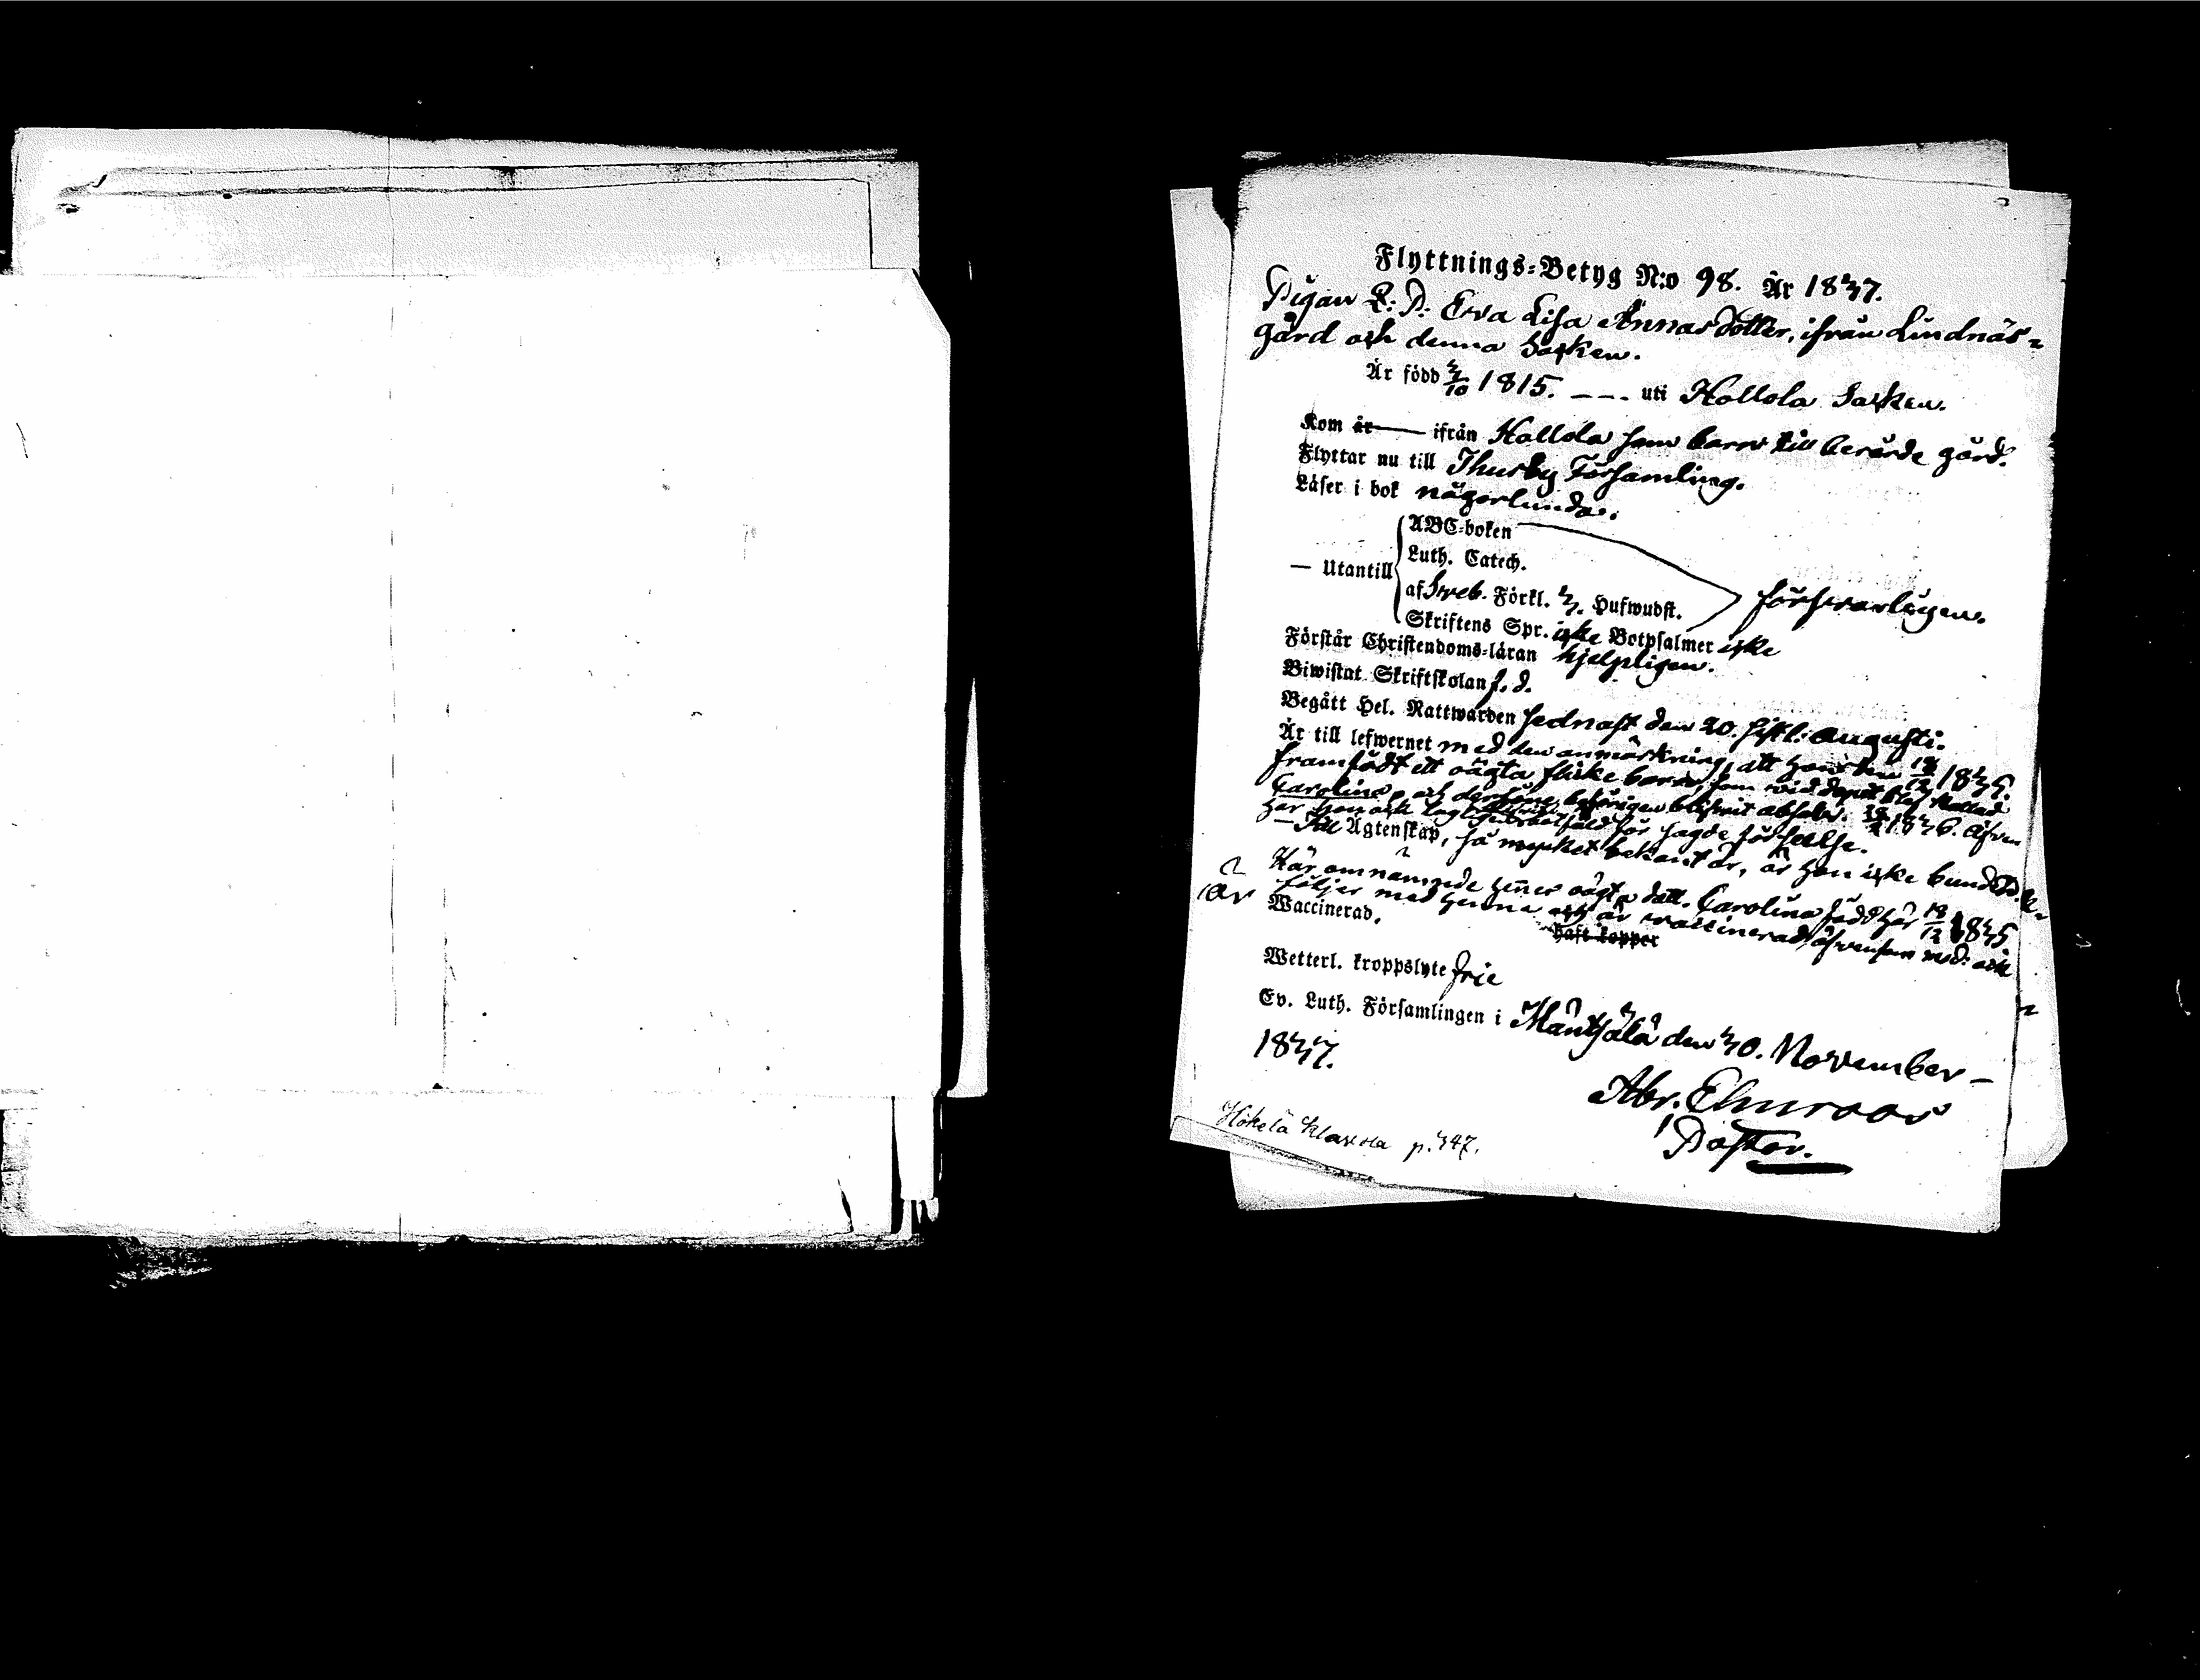 Flyttnings-Betyg N:o 98. År 1847.
Pigan Q: P: Eva Lisa Annasdotter, ifrån Lindnäs-
gård och denna Socken.
Är född 4/10 1815. --- uti Hollola Socken.
Kom år ifrån Hollola som barn till berörde gård.
Flyttar nu till Thusby Församling.
Läser i bok någorlunda.
— Utantill
ABC-boken
Luth. Catech.
af Sveb. Förkl. 4. Hufwudst.
försvarligen.
Skriftens Spr. icke Botpsalmer icke
Förstår Christendoms-läran hjelpligen.
Biwistat Skriftskolan f. d.
Begått Hel. Nattwarden sednast den 20. sistl. Augusti.
Är till lefwernet med den anmärkning, att hon den 18/12 1845.
framfödt ett oägta flicke barn, som vid dopet blef kallad
Carolina, och derföre behörigen blifvit absolv. 1846. Äfven
har hon ock lagligen för sagde förseelse.
— Till Ägtenskap, så mycket bekant är, är hon icke bunden.
Här omnämnde hennes oägta dott. Carolina född här 18/12 1845.
följer med henne och är vaccinerad, äfvensom mod: ock
är Waccinerad.
Haft koppor
Wetterl. kroppslyte frie
Ev. Luth. Församlingen i Mäntsälä den 40. November —
1847.
Abr. Elmroos
Pastor.
Hökelä Klaxola p. 447.